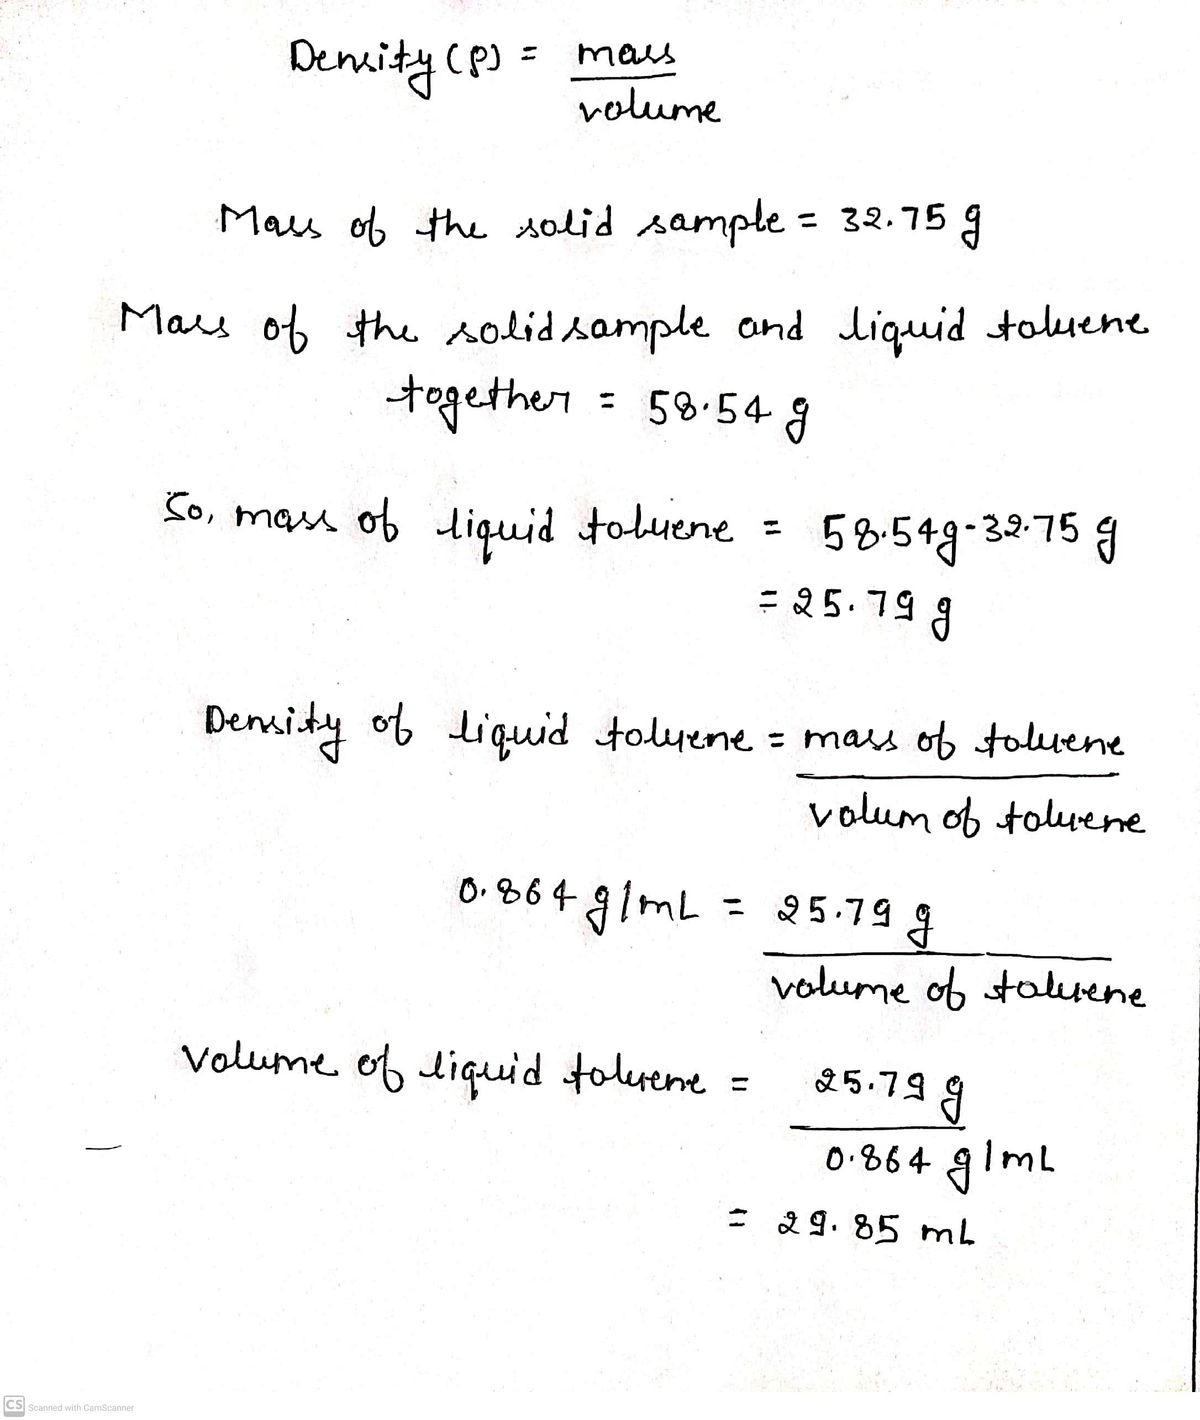 Density (ρ) = mass
volume
Mass of the solid sample = 32.75 g
Mass of the solid sample and liquid toluene
together = 58.54 g
So, mass of liquid toluene = 58.54g - 32.75 g
= 25.79 g
Density of liquid toluene = mass of toluene
volum of toluene
0.864 g/mL = 25.79 g
volume of toluene
Volume of liquid toluene = 25.79 g
0.864 g/mL
= 29.85 mL
CS Scanned with CamScanner